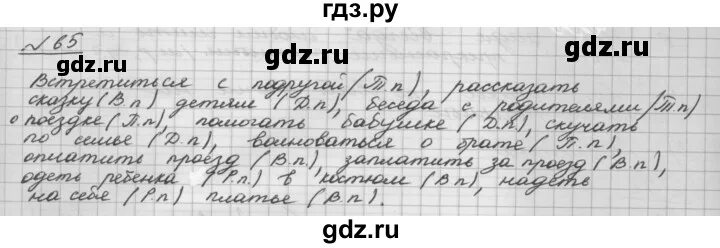 гдз.ру
№ 65
gdz.ru gdz.ru
Встретиться с подругой (Т.п), рассказать
сказку (В.п) детям (Д.п), беседа с родителями (Т.п)
о поездке (П.п), помогать бабушке (Д.п), скучать
по семье (Д.п), волноваться о брате (П.п),
оплатить проезд (В.п), заплатить за проезд (В.п),
одеть ребенка (Р.п.) в костюм (В.п), надеть
на себя (Р.п) платье (В.п).
gdz.ru gdz.ru gdz.ru
gdz.ru gdz.ru
gdz.ru gdz.ru gdz.ru